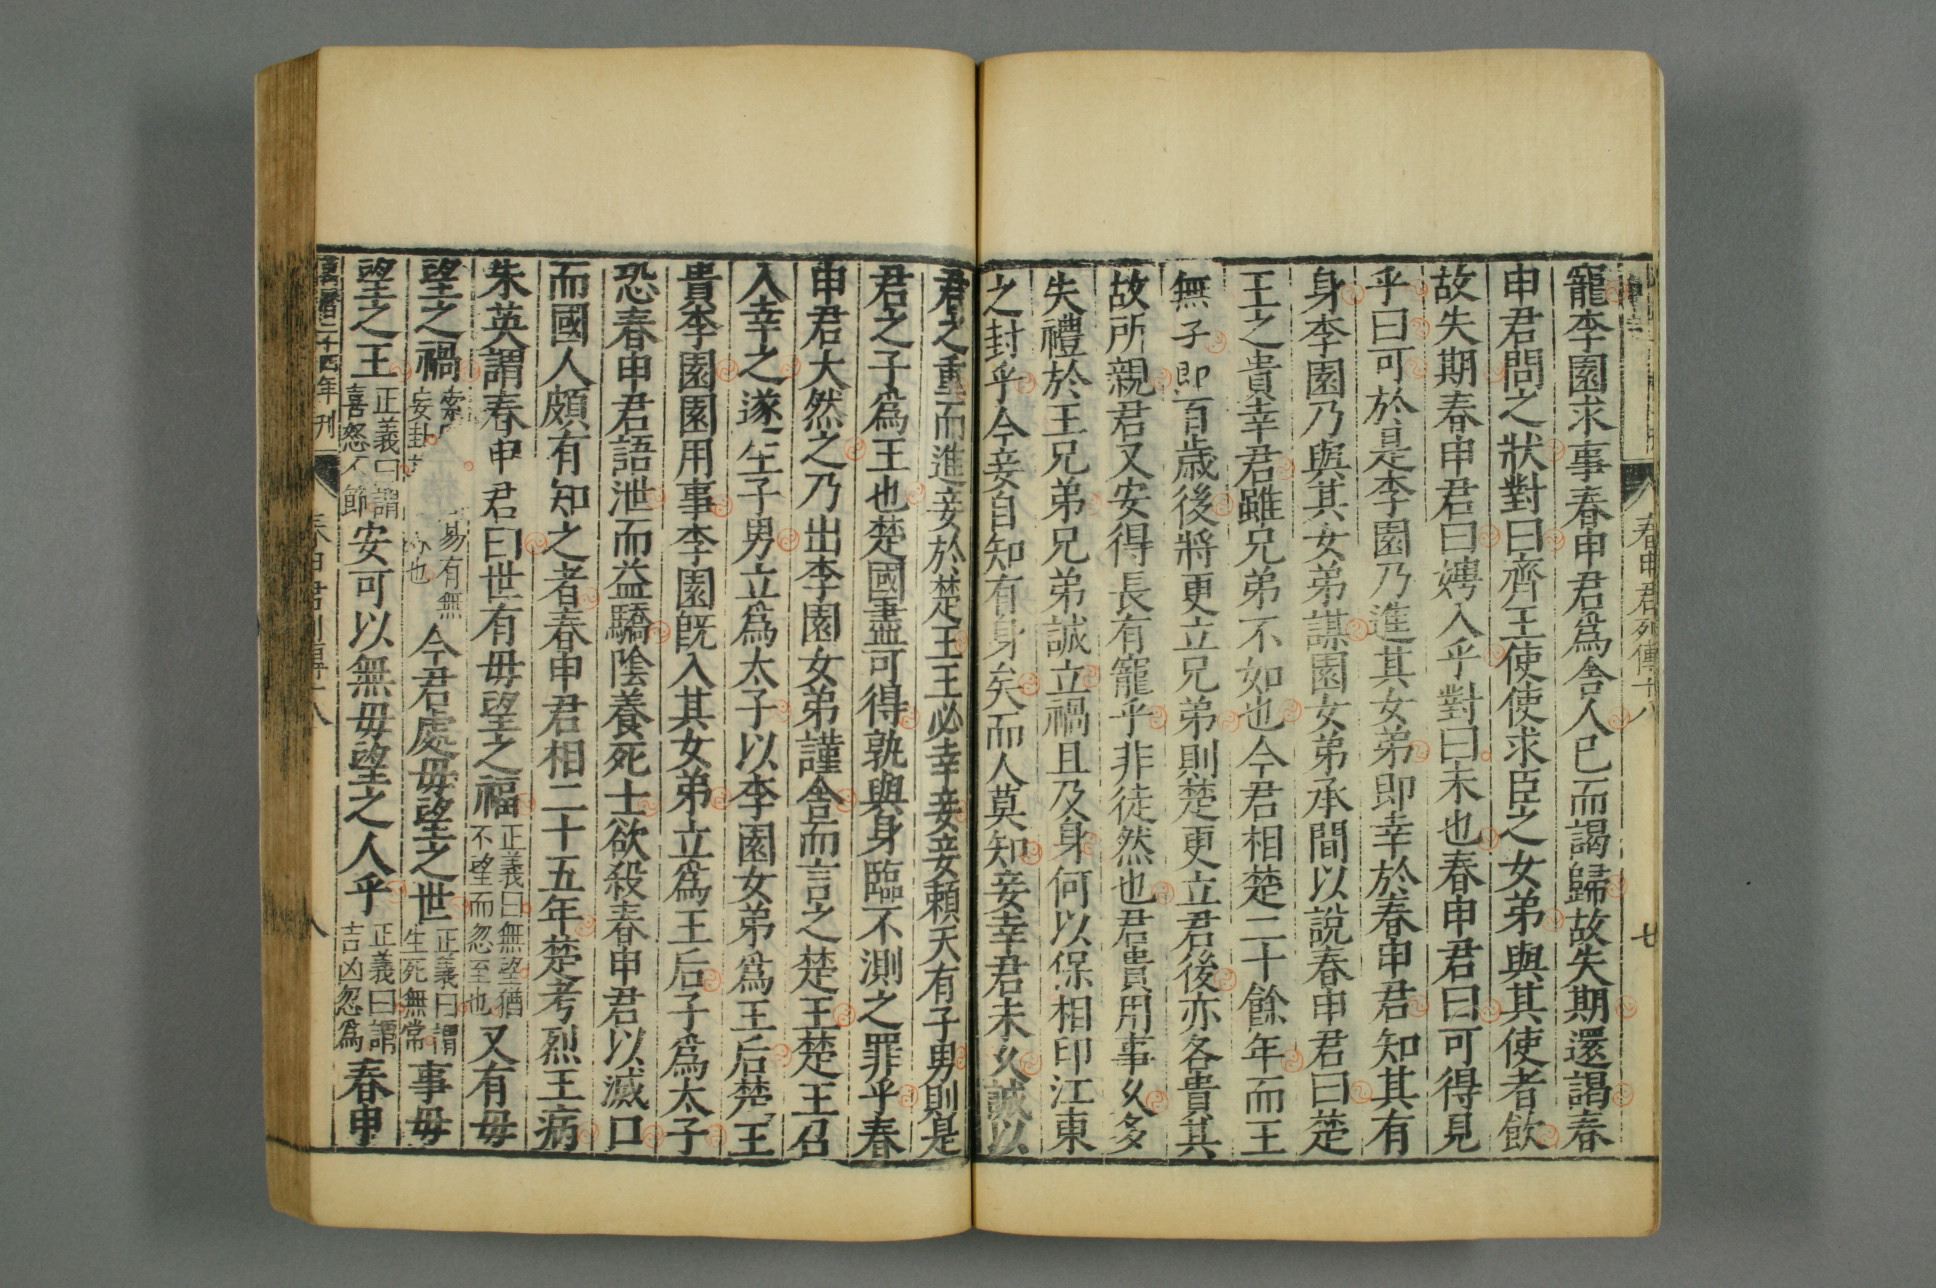 春申君列傳十八
七
寵李園求事春申君爲舍人已而謁歸故失期還謁春
申君問之狀對曰齊王使使求臣之女弟與其使者飲
故失期春申君曰娉入乎對曰未也春申君曰可得見
乎曰可於是李園乃進其女弟即幸於春申君知其有
身李園乃與其女弟謀園女弟承間以說春申君曰楚
王之貴幸君雖兄弟不如也今君相楚二十餘年而王
無子即百歲後將更立兄弟則楚更立君後亦各貴其
故所親君又安得長有寵乎非徒然也君貴用事久多
失禮於王兄弟兄弟誠立禍且及身何以保相印江東
之封乎今妾自知有身矣而人莫知妾幸君未久誠以
君之重而進妾於楚王王必幸妾妾賴天有子男則是
君之子爲王也楚國盡可得孰與身臨不測之罪乎春
申君大然之乃出李園女弟謹舍而言之楚王楚王召
入幸之遂生子男立爲太子以李園女弟爲王后楚王
貴李園園用事李園旣入其女弟立爲王后子爲太子
恐春申君語泄而益驕陰養死士欲殺春申君以滅口
而國人頗有知之者春申君相二十五年楚考烈王病
朱英謂春申君曰世有毋望之福正義曰無望猶不望而忽至也又有毋
望之禍易有無也今君處毋望之世正義曰謂生死無常事毋
望之王正義曰謂喜怒不節安可以無毋望之人乎正義曰謂吉凶忽爲春申
二十四年刊
春申君列傳十八
八